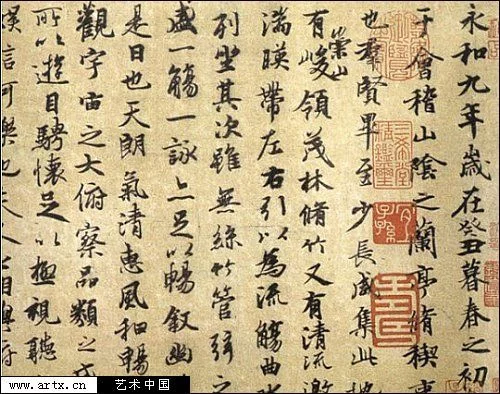 永和九年歲在癸丑暮春之初
于會稽山陰之蘭亭脩稧事
也羣賢畢至少長咸集此地
有崇山峻領茂林脩竹又有清流激
湍暎帶左右引以為流觴曲水
列坐其次雖無絲竹管弦之
盛一觴一詠亦足以暢叙幽
是日也天朗氣清惠風和暢
觀宇宙之大俯察品類之盛
所以遊目騁懷足以極視聽
信可樂也夫人之相與俯
三希堂精鑑璽
宜子孫
www.artx.cn 艺术中国